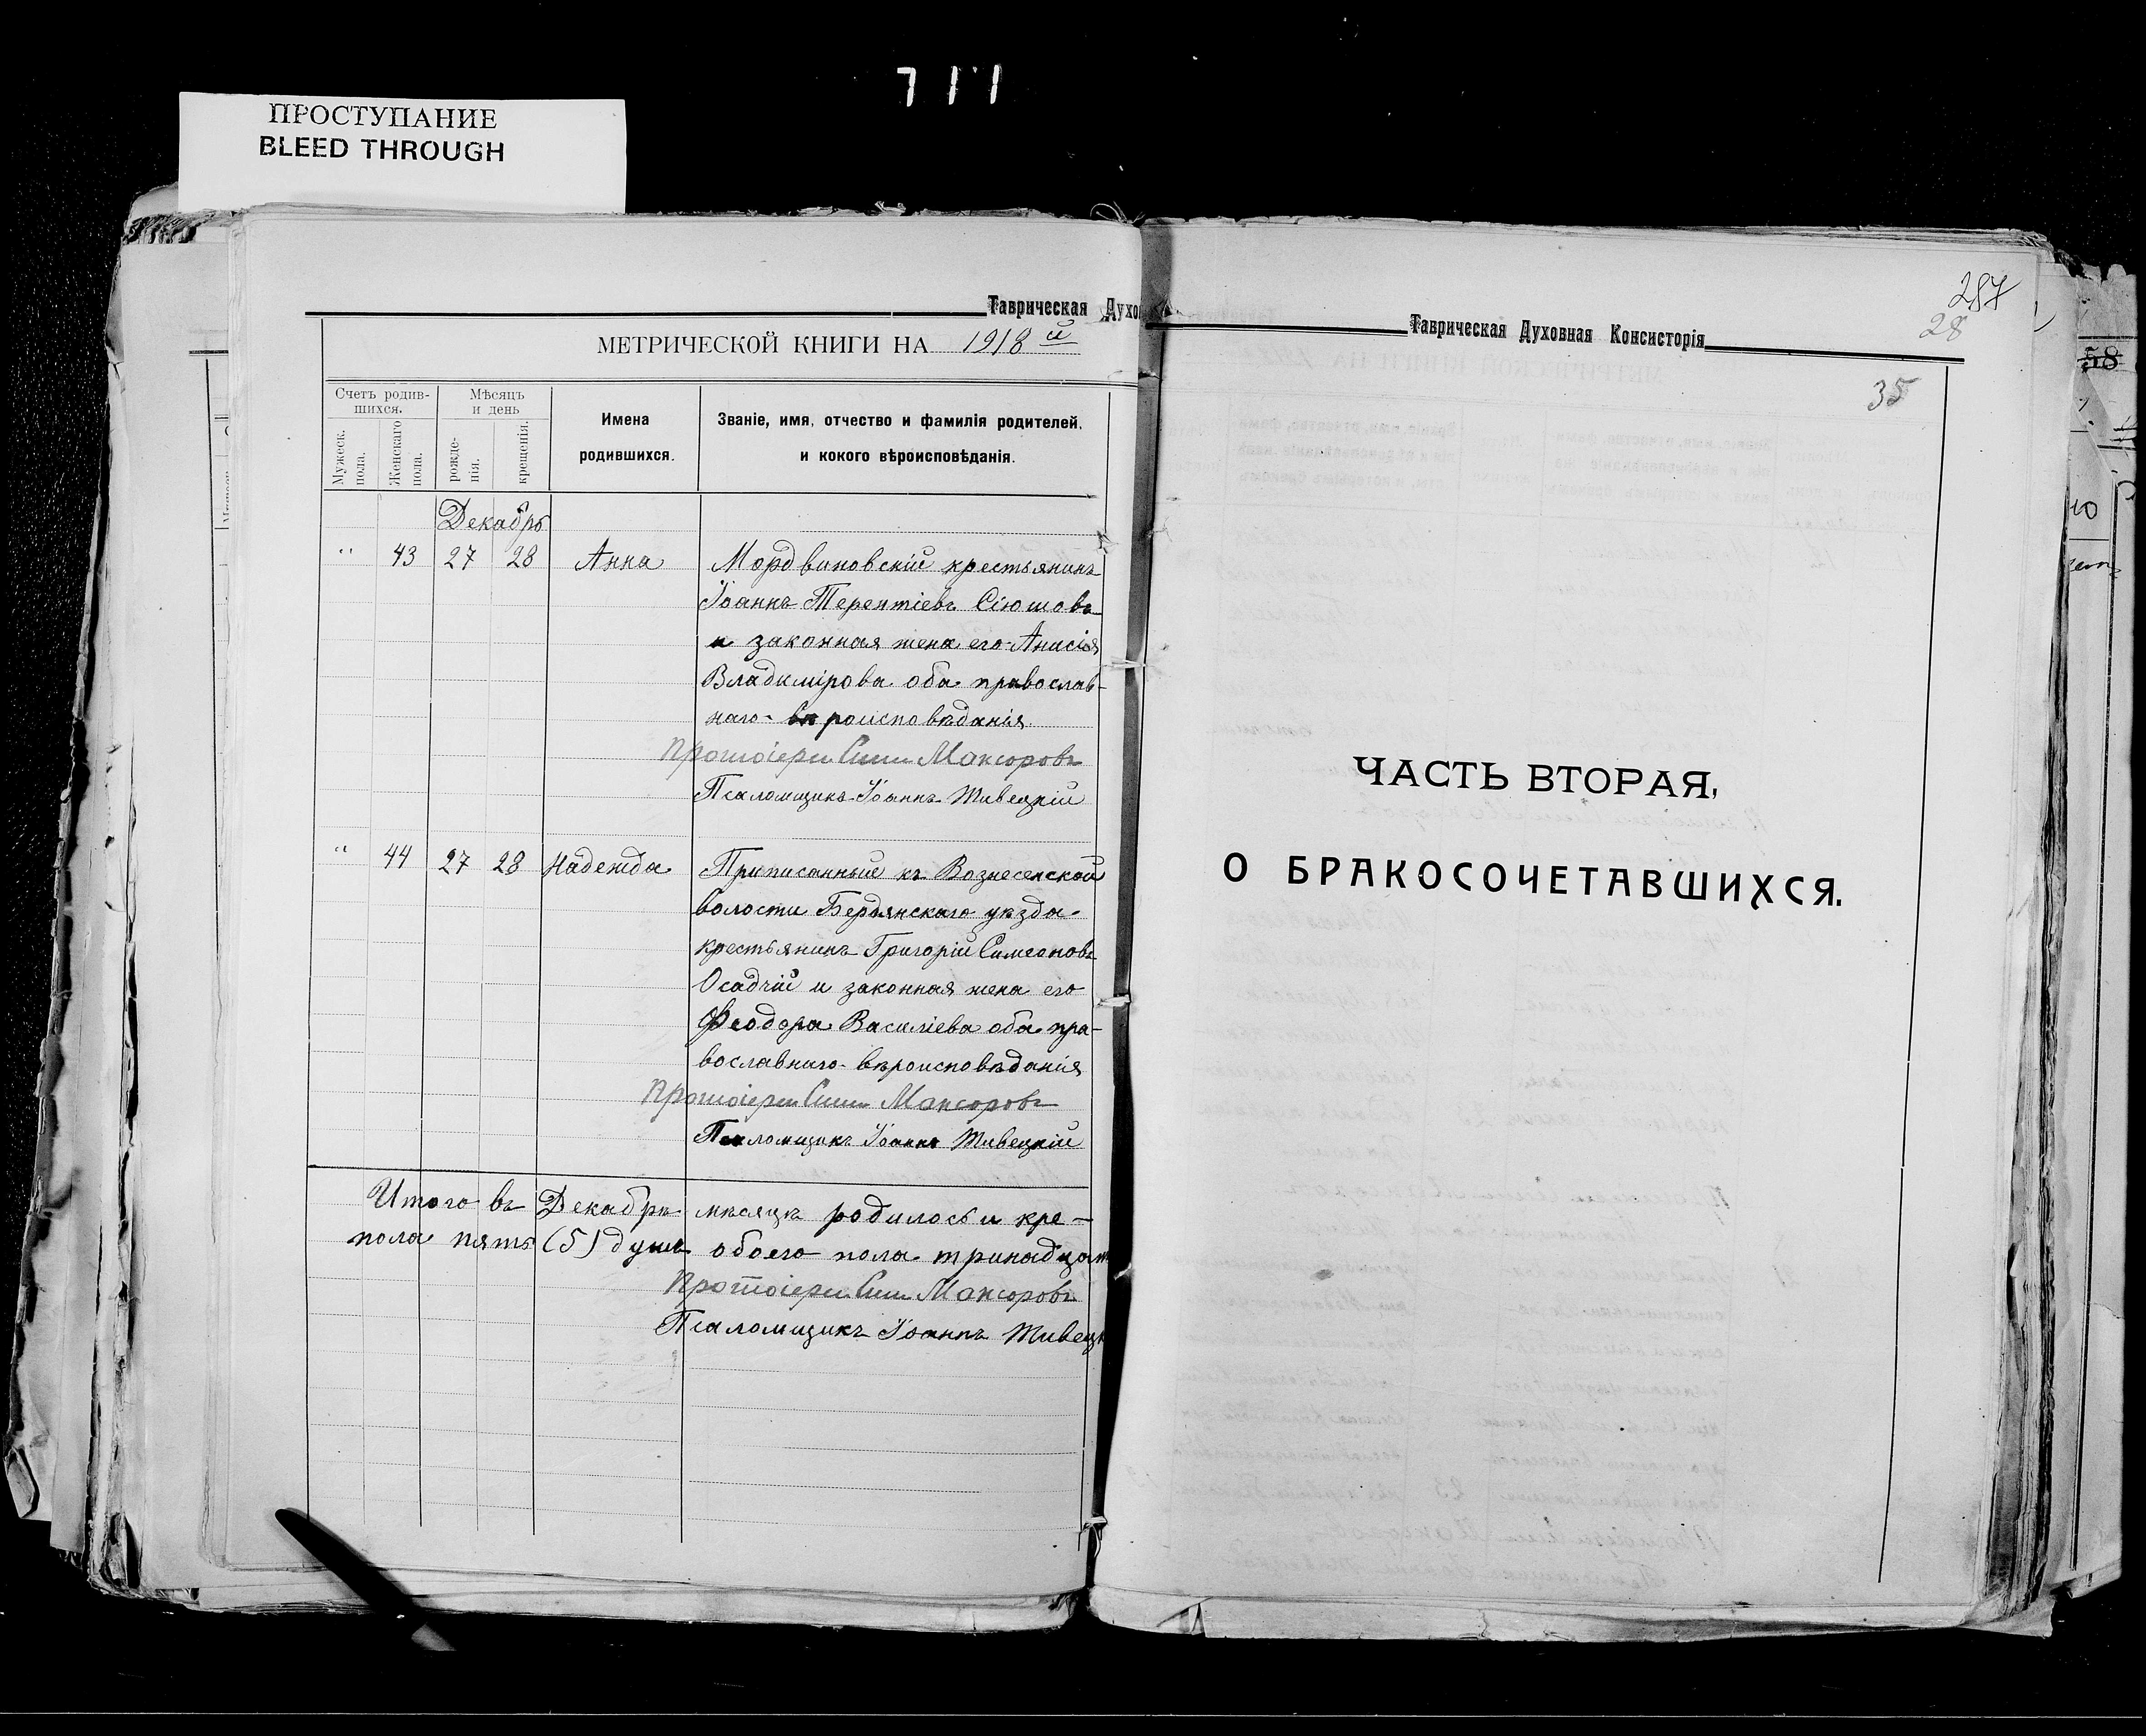 711
ПРОСТУПАНИЕ
BLEED THROUGH
Таврическая Духо
МЕТРИЧЕСКОЙ КНИГИ НА 1918 й
Счетъ родив-
шихся.
Мужеск. пола.
Женскаго пола.
Мѣсяцъ
и день
рожде-
нія.
крещенія.
Имена
родившихся.
Званіе, имя, отчество и фамилія родителей,
и кокого вѣроисповѣданія.
Декабрь
" 43 27 28 Анна Мордвиновскій крестьянинъ
Іоаннъ Терентіевъ Сіюшовъ
и законная жена его Анисія
Владимірова оба православ-
наго вѣроисповѣданія
Протоіерей Мансоровъ
Псаломщикъ Іоаннъ Живецкій
" 44 27 28 Надежда Приписанный къ Вознесенской
волости Бердянскаго уѣзда
крестьянинъ Григорій Симеоновъ
Осадчій и законная жена его
Феодора Василіева оба пра-
вославнаго вѣроисповѣданія
Протоіерей Мансоровъ
Псаломщикъ Іоаннъ Живецкій
Итого въ Декабрѣ мѣсяцѣ родилось и кре-
пола пять (5) душъ обоего пола тринадцат
Протоіерей Мансоровъ
Псаломщикъ Іоаннъ Живецк
Таврическая Духовная Консисторія
287
28
35
ЧАСТЬ ВТОРАЯ,
О БРАКОСОЧЕТАВШИХСЯ.
58